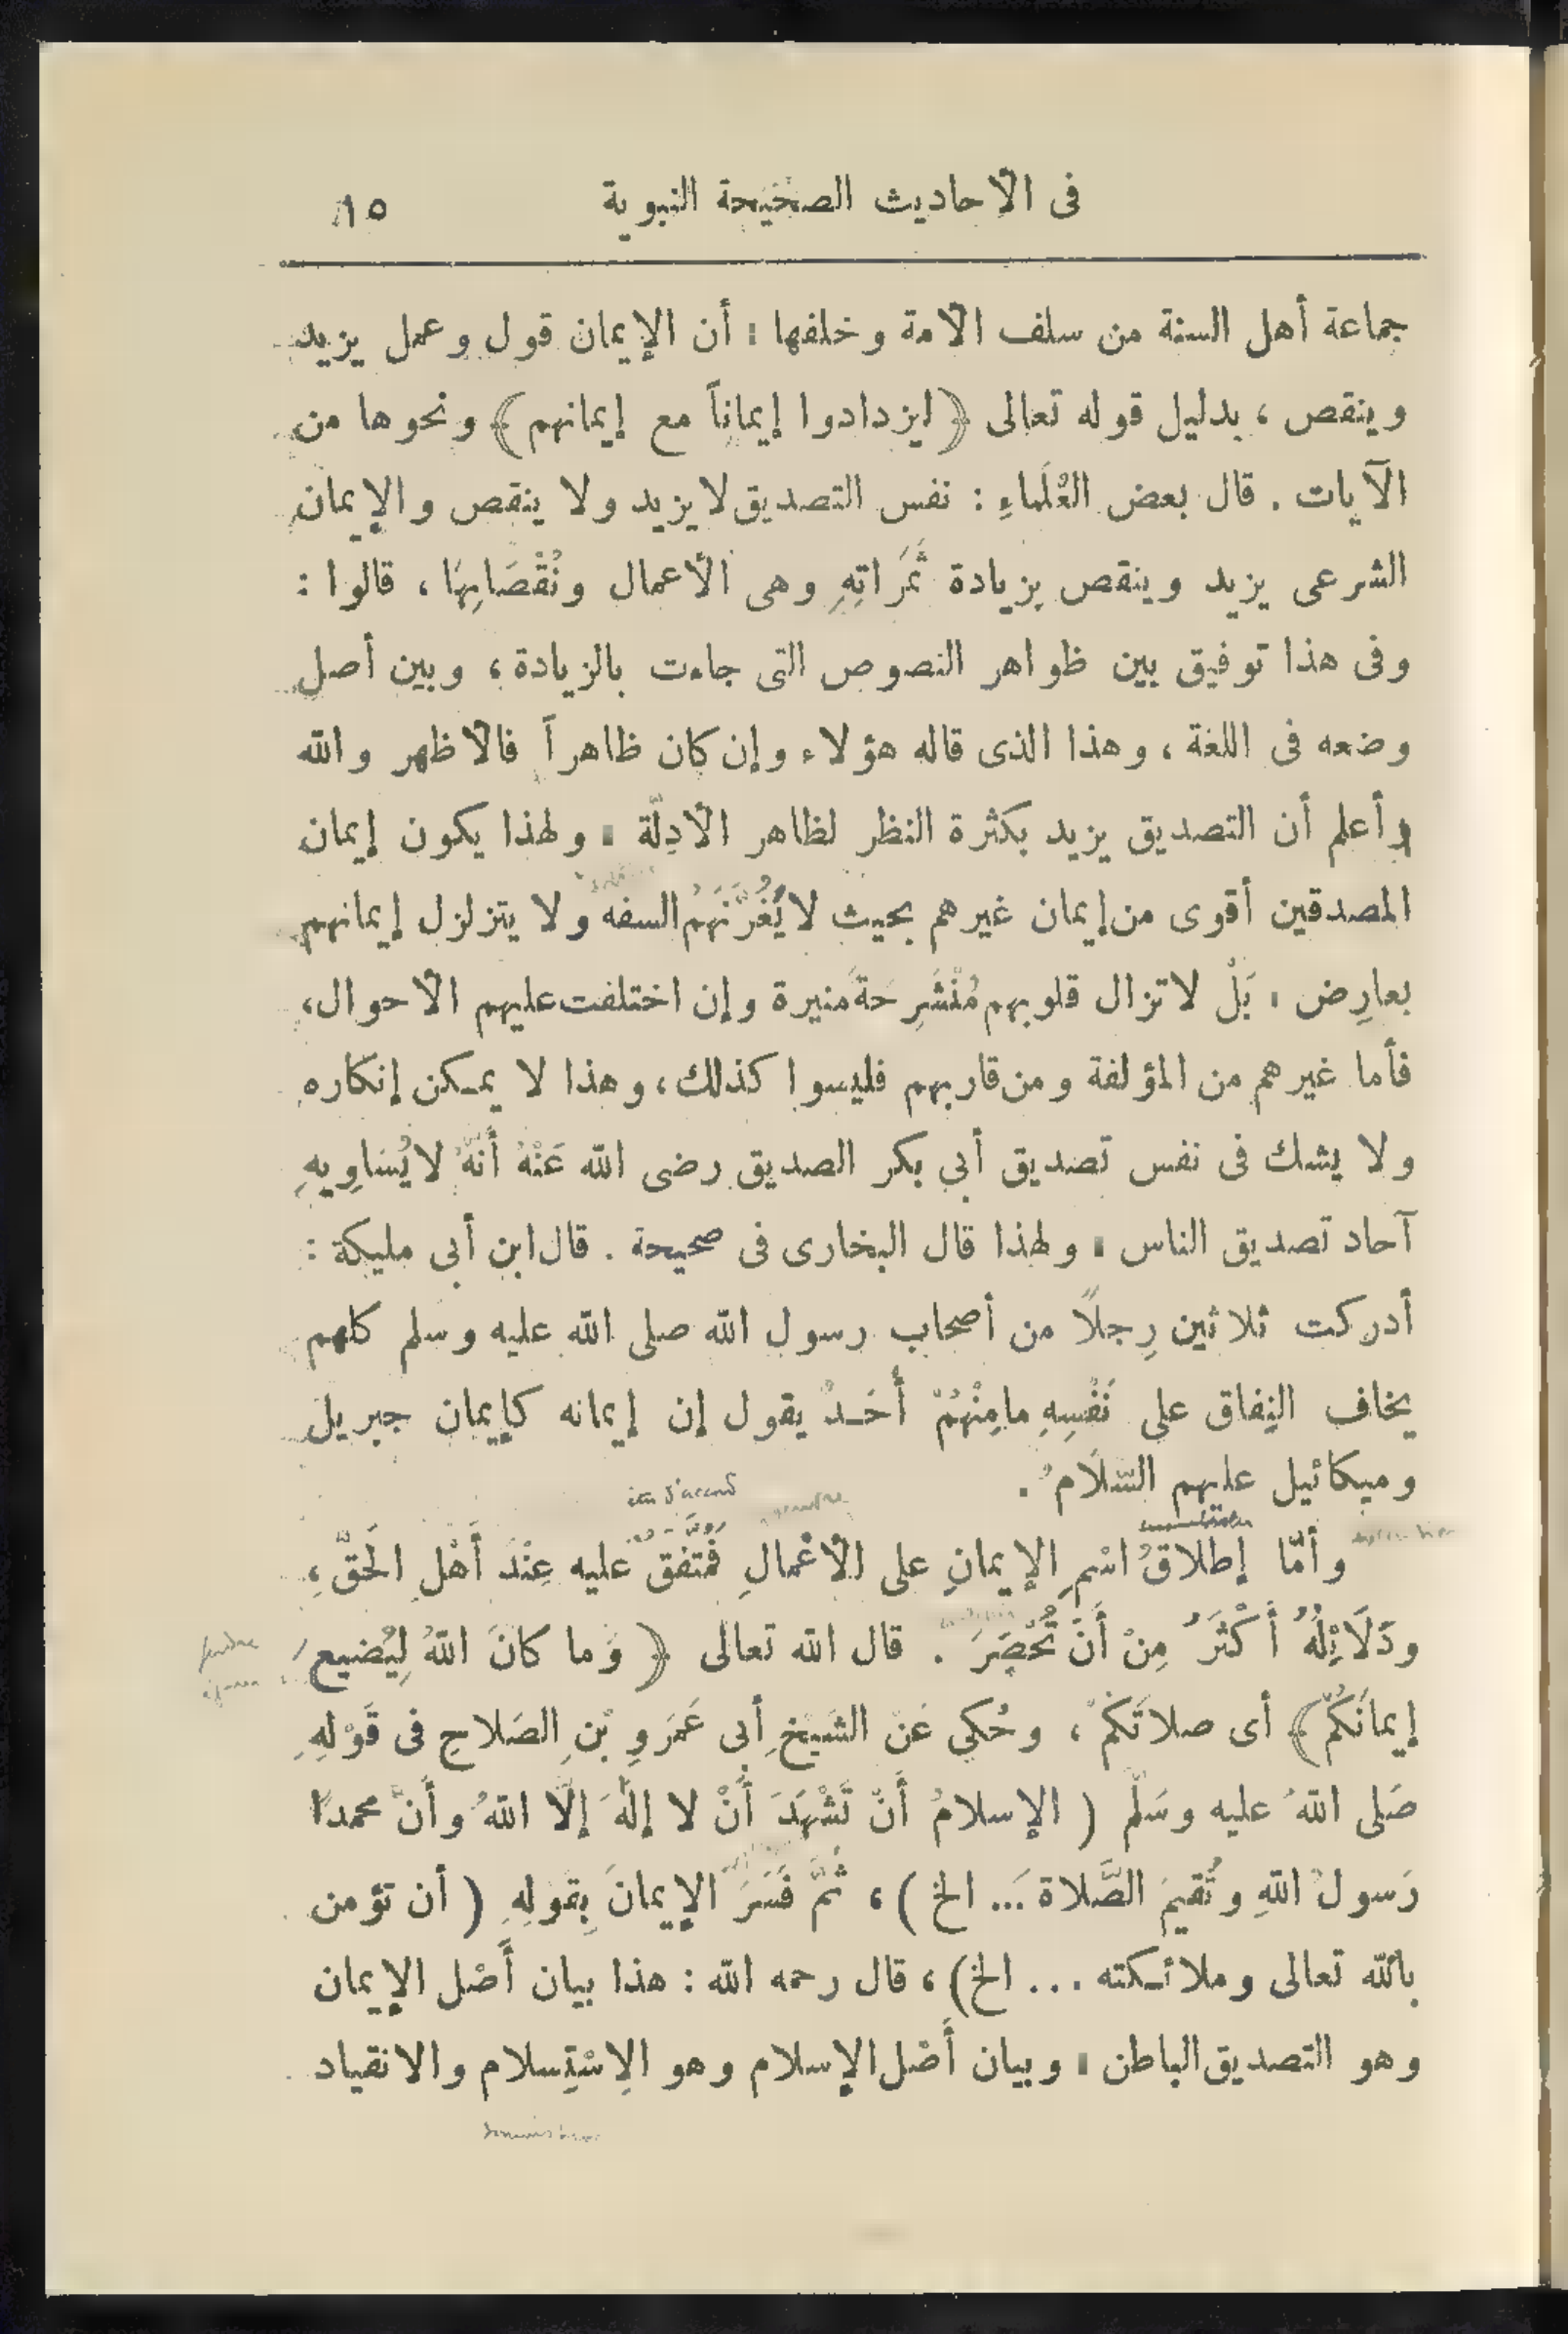 فى الأحاديث الصحيحة النبوية ١٥
جماعة أهل السنة من سلف الأمة وخلفها : أن الإيمان قول وعمل يزيد
وينقص ، بدليل قوله تعالى ﴿ ليزدادوا إيماناً مع إيمانهم ﴾ ونحوها من
الآيات . قال بعض العُلَماءِ : نفس التصديق لا يزيد ولا ينقص والإيمان
الشرعى يزيد وينقص بزيادة ثَمَرَاتِهِ وهى الأعمال ونُقْصَانِهَا ، قالوا :
وفى هذا توفيق بين ظواهر النصوص التى جاءت بالزيادة ، وبين أصل
وضعه فى اللغة ، وهذا الذى قاله هؤلاء وإن كان ظاهراً فالأظهر والله
وأعلم أن التصديق يزيد بكثرة النظر لظاهر الأدِلّة ، ولهذا يكون إيمان
المصدقين أقوى من إيمان غيرهم بحيث لا يَغُرَّنَهُمُ السفه ولا يتزلزل إيمانهم
بعارِض ، بَلْ لا تزال قلوبهم مُنْشَرِحَةً منيرة وإن اختلفت عليهم الأحوال ،
فأما غيرهم من المؤلفة ومن قاربهم فليسوا كذلك ، وهذا لا يمكن إنكاره
ولا يشك فى نفس تصديق أبى بكر الصديق رضى الله عَنْهُ أَنَّهُ لا يُسَاوِيهِ
آحاد تصديق الناس ، ولهذا قال البخارى فى صحيحة . قال ابن أبى مليكة :
أدركت ثلاثين رِجلاً من أصحاب رسول الله صلى الله عليه وسلم كلهم
يخاف النِفاق على نَفْسِهِ ما مِنْهُمْ أَحَدٌ يقول إن إيمانه كإيمان جبريل
وميكائيل عليهم السَّلَامُ .
être d'accord
وأمّا إطلاقُ اسْمِ الإيمانِ على الأعْمالِ فَمُتَّفَقٌ عليه عِنْدَ أَهْلِ الحَقّ ،
ودَلَائِلُهُ أَكْثَرُ مِنْ أَنْ تُحْصَرَ . قال الله تعالى ﴿ وَما كانَ اللهُ لِيُضيع
إيمانَكُمْ ﴾ أى صلاتَكُمْ ، وحُكي عَنْ الشَيْخِ أبى عَمْرَوِ بْنِ الصَلاحِ فى قَوْلِهِ
صَلى اللهُ عليه وسَلّم ( الإسلامُ أَنْ تَشْهَدَ أَنْ لا إلَهَ إلّا اللهُ وأَنّ محمداً
رَسولُ اللهِ وتُقيمَ الصَّلاةَ ... الخ ) ، ثُمَّ فَسَرَ الإيمانَ بِقَولِهِ ( أن تؤمن
بالله تعالى وملائكته ... الخ ) ، قال رحمه الله : هذا بيان أَصْل الإيمان
وهو التصديق الباطن ، وبيان أَصْل الإسلام وهو الاِسْتِسلام والانقياد